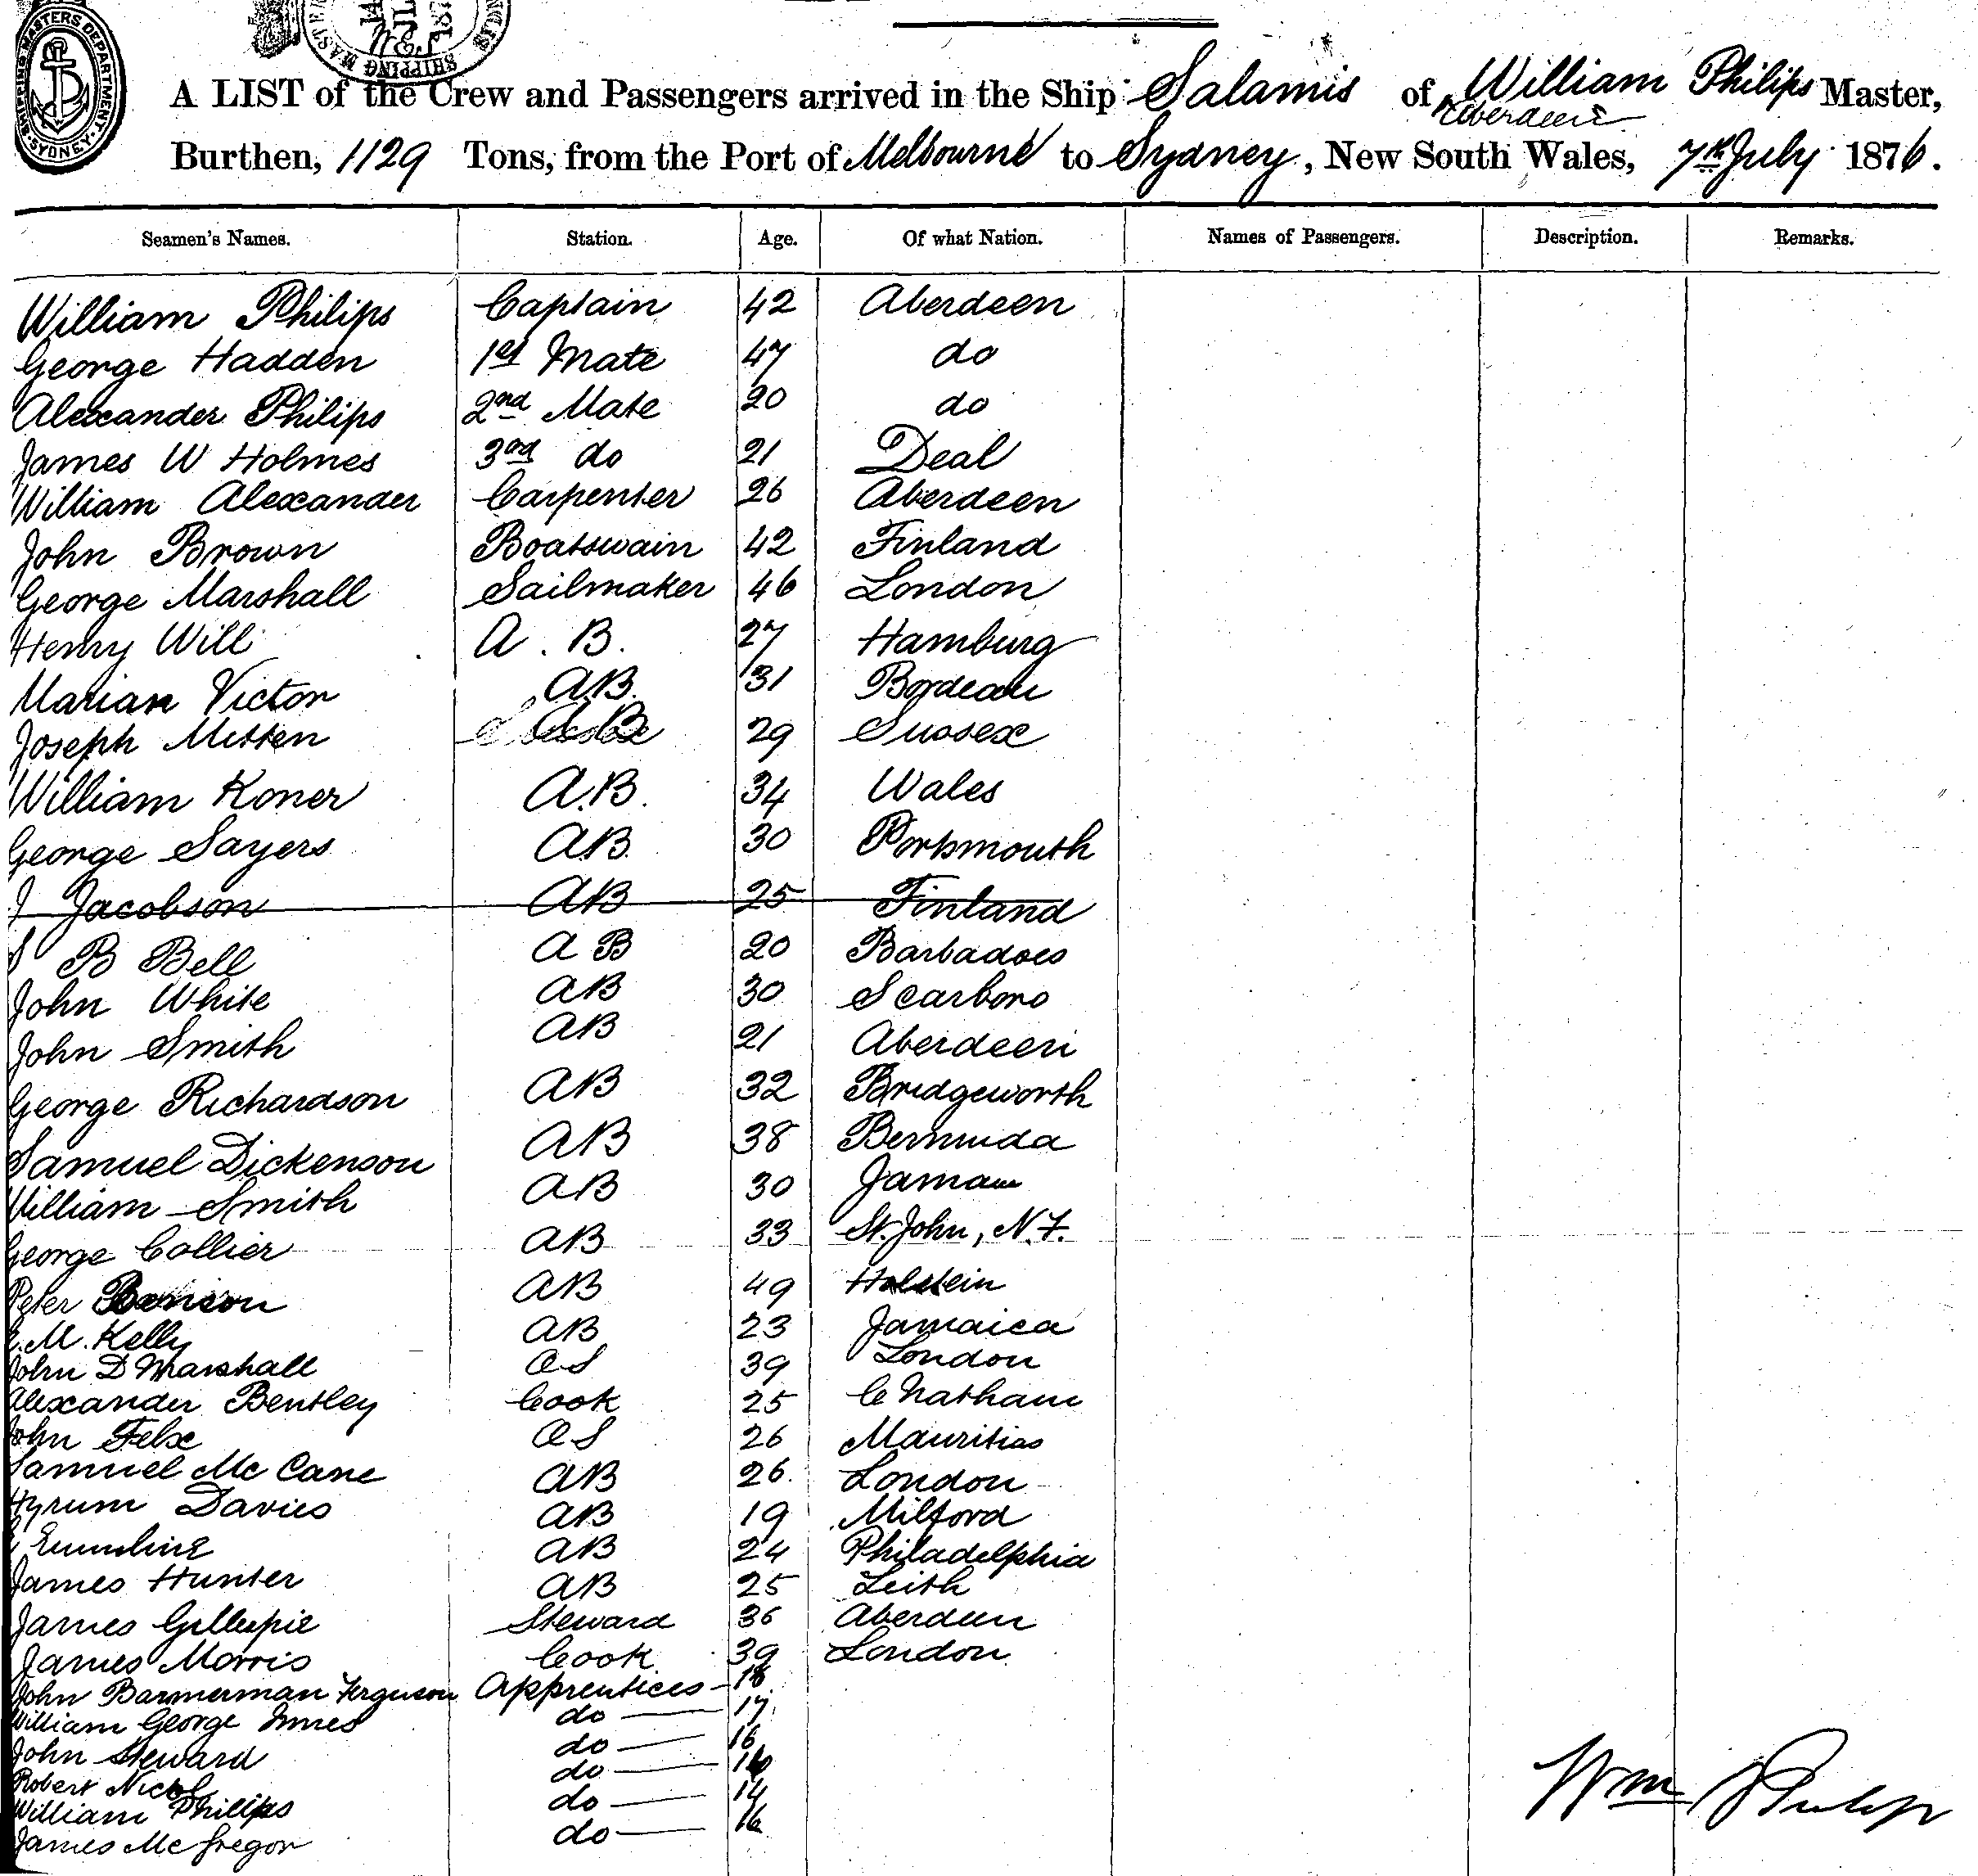 SHIPPING MASTERS DEPARTMENT
SYDNEY
SHIPPING MASTER
A LIST of the Crew and Passengers arrived in the Ship Salamis of William Philips Master,
Aberdeen
Burthen, 1129 Tons, from the Port of Melbourne to Sydney, New South Wales, 7th July 1876.
Seamen's Names. Station. Age. Of what Nation. Names of Passengers. Description. Remarks.
William Philips Captain 42 Aberdeen
George Hadden 1st Mate 47 do
Alexander Philips 2nd Mate 20 do
James W Holmes 3rd do 21 Deal
William Alexander Carpenter 26 Aberdeen
John Brown Boatswain 42 Finland
George Marshall Sailmaker 46 London
Henry Will A.B. 27 Hamburg
Marian Victor AB. 31 Bordeau
Joseph Mitten AB 29 Sussex
William Koner A.B. 34 Wales
George Sayers A.B. 30 Portsmouth
J Jacobson AB 25 Finland
S B Bell AB 20 Barbadoes
John White AB 30 Scarboro
John Smith AB 21 Aberdeen
George Richardson AB 32 Bridgeworth
Samuel Dickenson AB 38 Bermuda
William Smith AB 30
George Collier AB 33 St. John, N.F.
Peter Benson AB 49 Holstein
E.M. Kelly AB 23 Jamaica
John D Marshall OS 39 London
Alexander Bentley Cook 25 Chatham
John Felix OS 26 Mauritias
Samuel Mc Cane AB 26. London
Hyrum Davies AB 19 Milford
AB 24 Philadelphia
James Hunter AB 25 Leith
James Gillespie Steward 36 Aberdeen
James Morris Cook 39 London
John Barmerman Ferguson Apprentices 18
William George Innes do 17
John Steward do 16
Robert Nicol do 16
William Phillips do 14
James McGregor do 16
Wm Philip